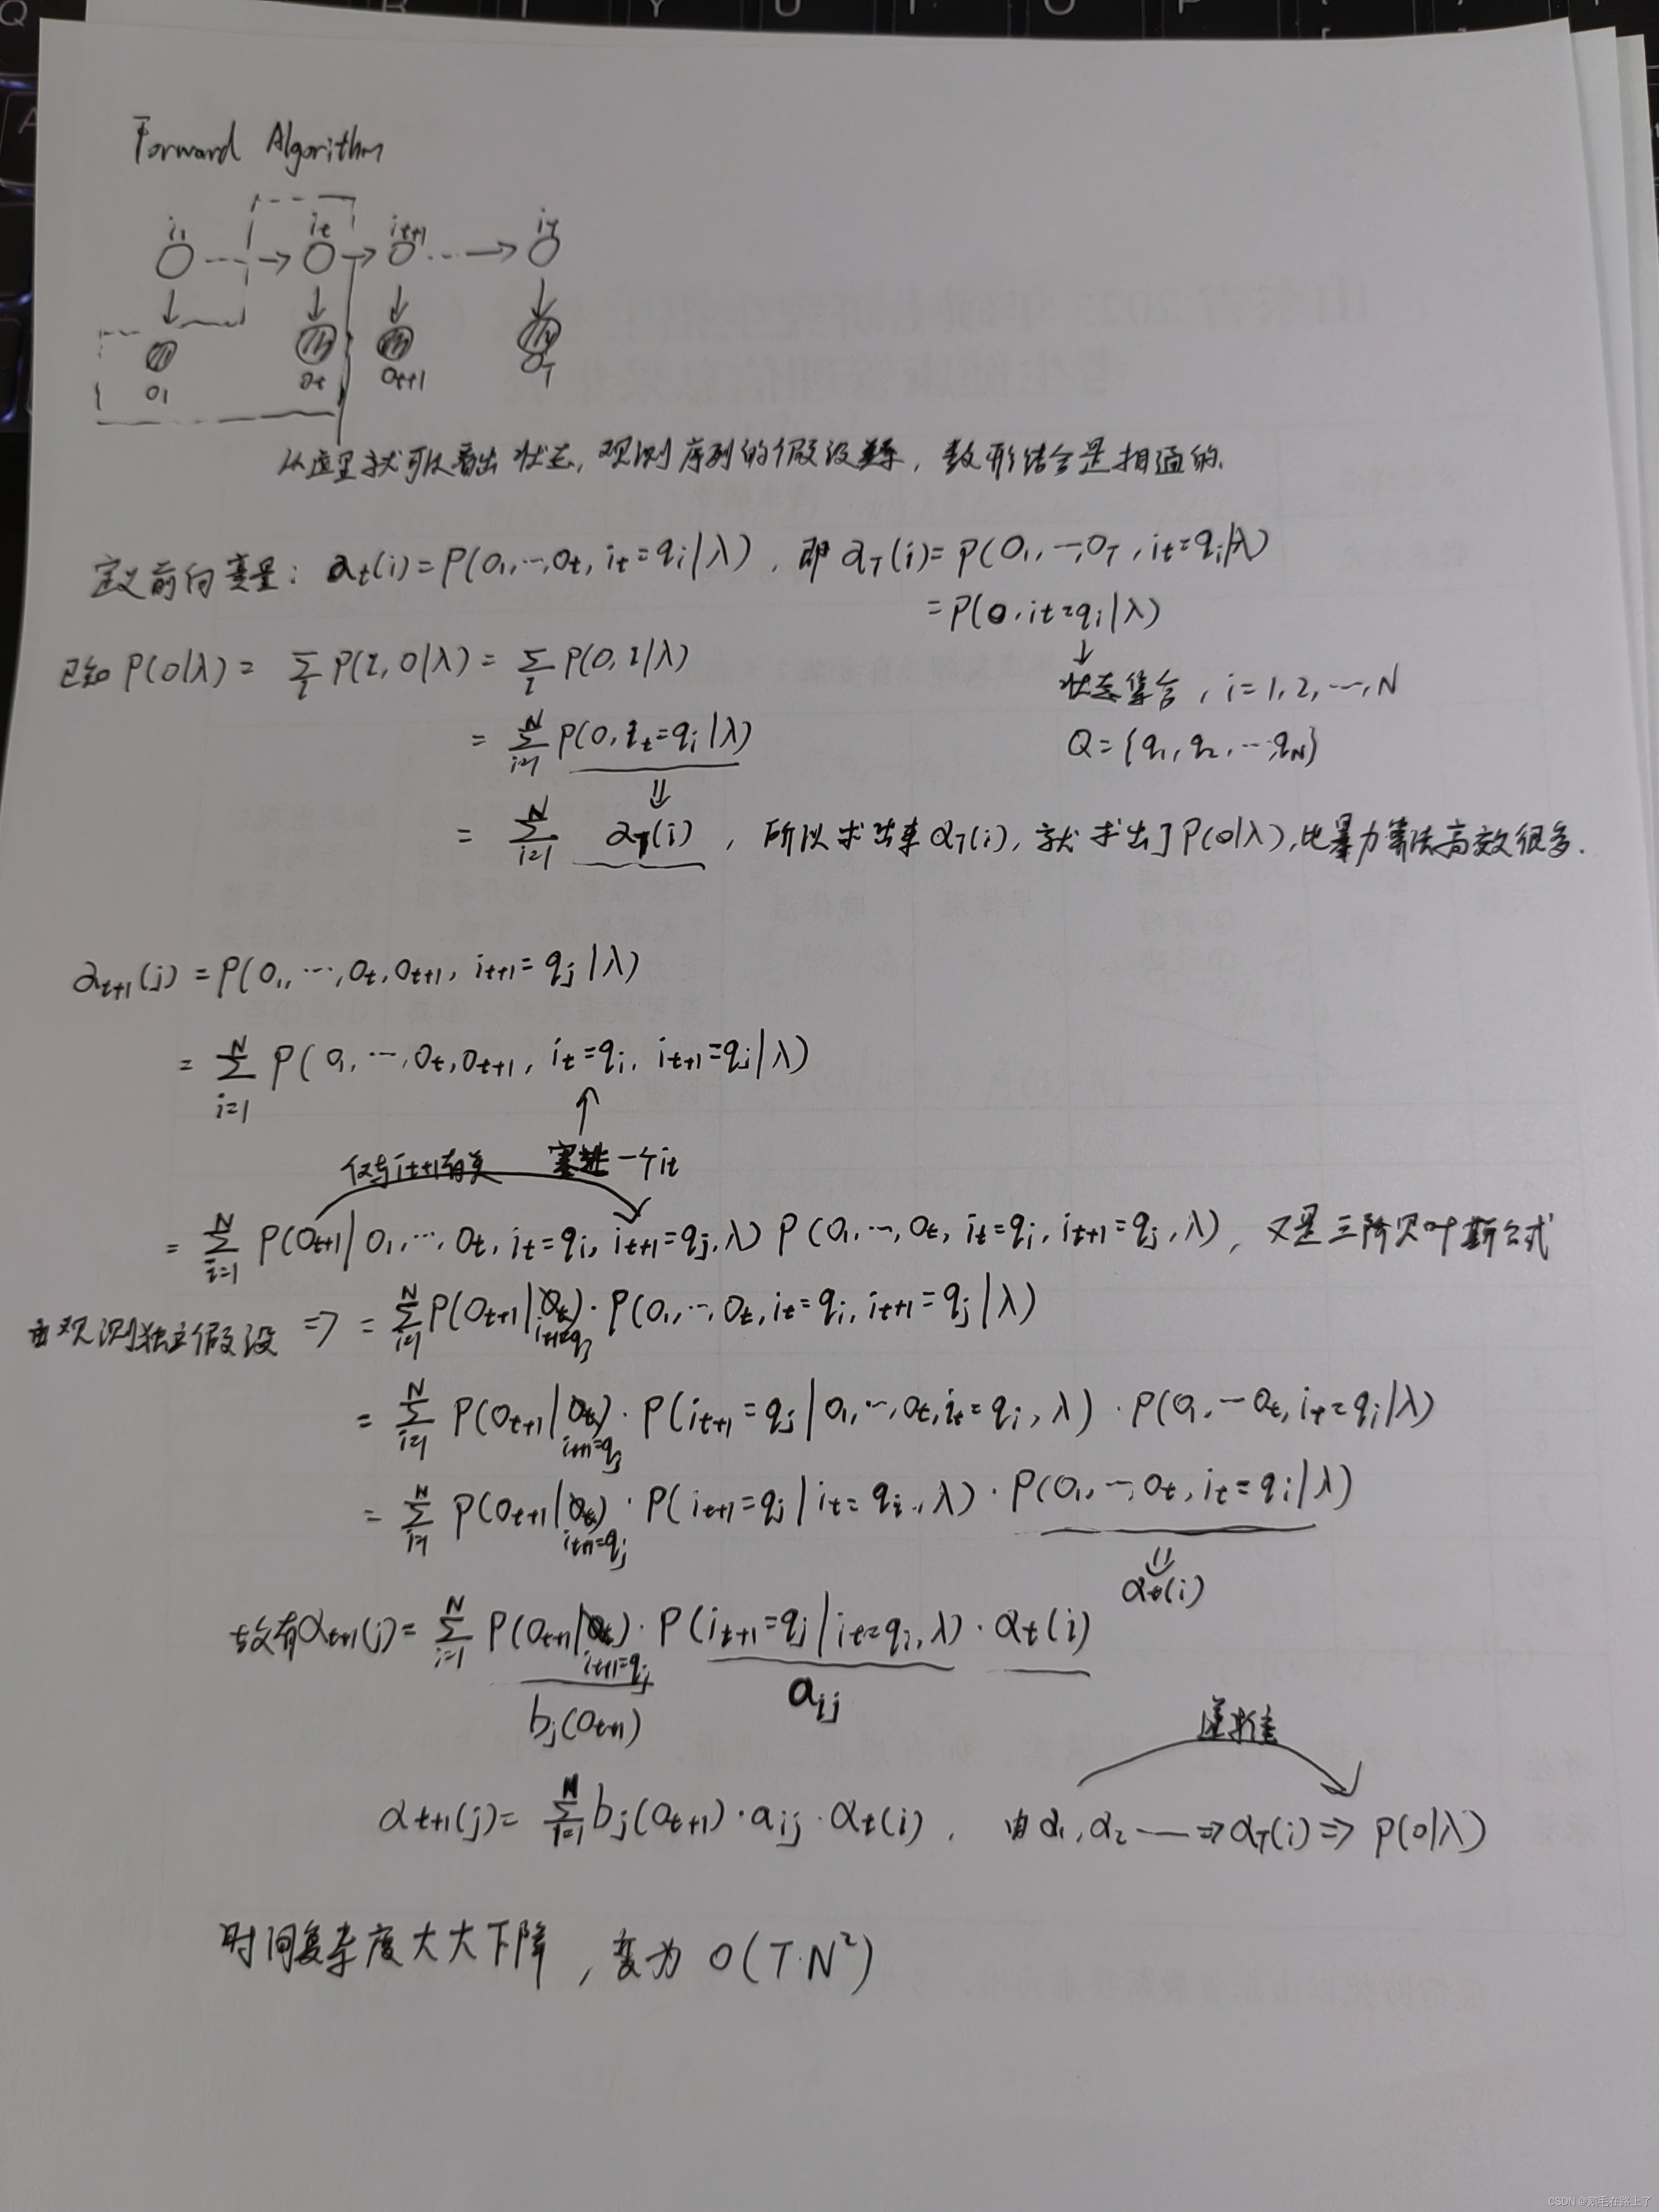 Forward Algorithm
i₁ iₜ iₜ₊₁ i_T
o₁ oₜ oₜ₊₁ o_T
从这里就可以看出 状态, 观测序列的假设, 数形结合是相通的.
定义前向变量: αₜ(i)=P(O₁,…,Oₜ, iₜ=qᵢ|λ), 即 α_T(i)=P(O₁,…,O_T, iₜ=qᵢ|λ)
=P(O, iₜ=qᵢ|λ)
↓
已知 P(O|λ)= Σ_I P(I,O|λ)= Σ_I P(O,I|λ)
状态集合, i=1,2,…,N
= Σᵢ₌₁ᴺ P(O, iₜ=qᵢ|λ)
Q={q₁, q₂, …, q_N}
⇓
= Σᵢ₌₁ᴺ α_T(i), 所以求出来α_T(i), 就求出了P(O|λ), 比暴力算法高效很多.
αₜ₊₁(j)=P(O₁,…,Oₜ,Oₜ₊₁, iₜ₊₁=qⱼ|λ)
= Σᵢ₌₁ᴺ P(O₁,…,Oₜ,Oₜ₊₁, iₜ=qᵢ, iₜ₊₁=qⱼ|λ)
↑
仅与iₜ₊₁有关 塞进一个iₜ
= Σᵢ₌₁ᴺ P(Oₜ₊₁|O₁,…,Oₜ, iₜ=qᵢ, iₜ₊₁=qⱼ,λ) P(O₁,…,Oₜ, iₜ=qᵢ, iₜ₊₁=qⱼ,λ), 又是三阶贝叶斯公式
由观测独立假设 ⇒ = Σᵢ₌₁ᴺ P(Oₜ₊₁|iₜ₊₁=qⱼ)·P(O₁,…,Oₜ, iₜ=qᵢ, iₜ₊₁=qⱼ|λ)
= Σᵢ₌₁ᴺ P(Oₜ₊₁|iₜ₊₁=qⱼ)·P(iₜ₊₁=qⱼ|O₁,…,Oₜ, iₜ=qᵢ,λ)·P(O₁,…Oₜ, iₜ=qᵢ|λ)
= Σᵢ₌₁ᴺ P(Oₜ₊₁|iₜ₊₁=qⱼ)·P(iₜ₊₁=qⱼ|iₜ=qᵢ,λ)·P(O₁,…,Oₜ, iₜ=qᵢ|λ)
⇓
αₜ(i)
故有αₜ₊₁(j)= Σᵢ₌₁ᴺ P(Oₜ₊₁|iₜ₊₁=qⱼ)·P(iₜ₊₁=qⱼ|iₜ=qᵢ,λ)·αₜ(i)
bⱼ(Oₜ₊₁) aᵢⱼ
递推
αₜ₊₁(j)= Σᵢ₌₁ᴺ bⱼ(Oₜ₊₁)·aᵢⱼ·αₜ(i), 由α₁,α₂ — ⇒α_T(i)⇒ P(O|λ)
时间复杂度大大下降, 变为 O(T·N²)
CSDN @鹅毛在路上了